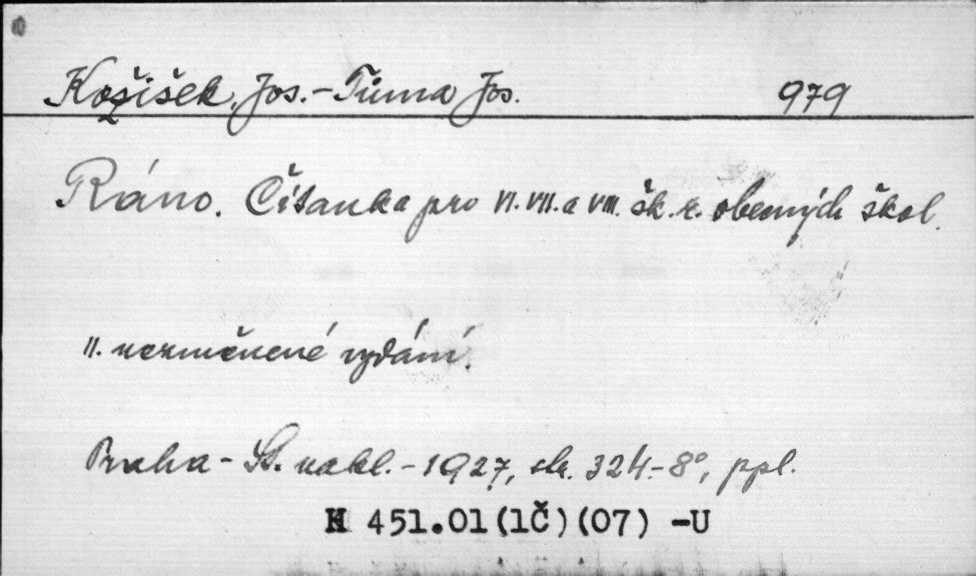 Kožíšek, Jos. - Tůma Jos. 979
Ráno. Čítanka pro VI. VII. a VIII. šk. r. obecných škol.
II. nezměněné vydání.
Praha - St. nakl. - 1927, str. 324. - 8°, ppl.
H 451.01(1Č)(07) -U